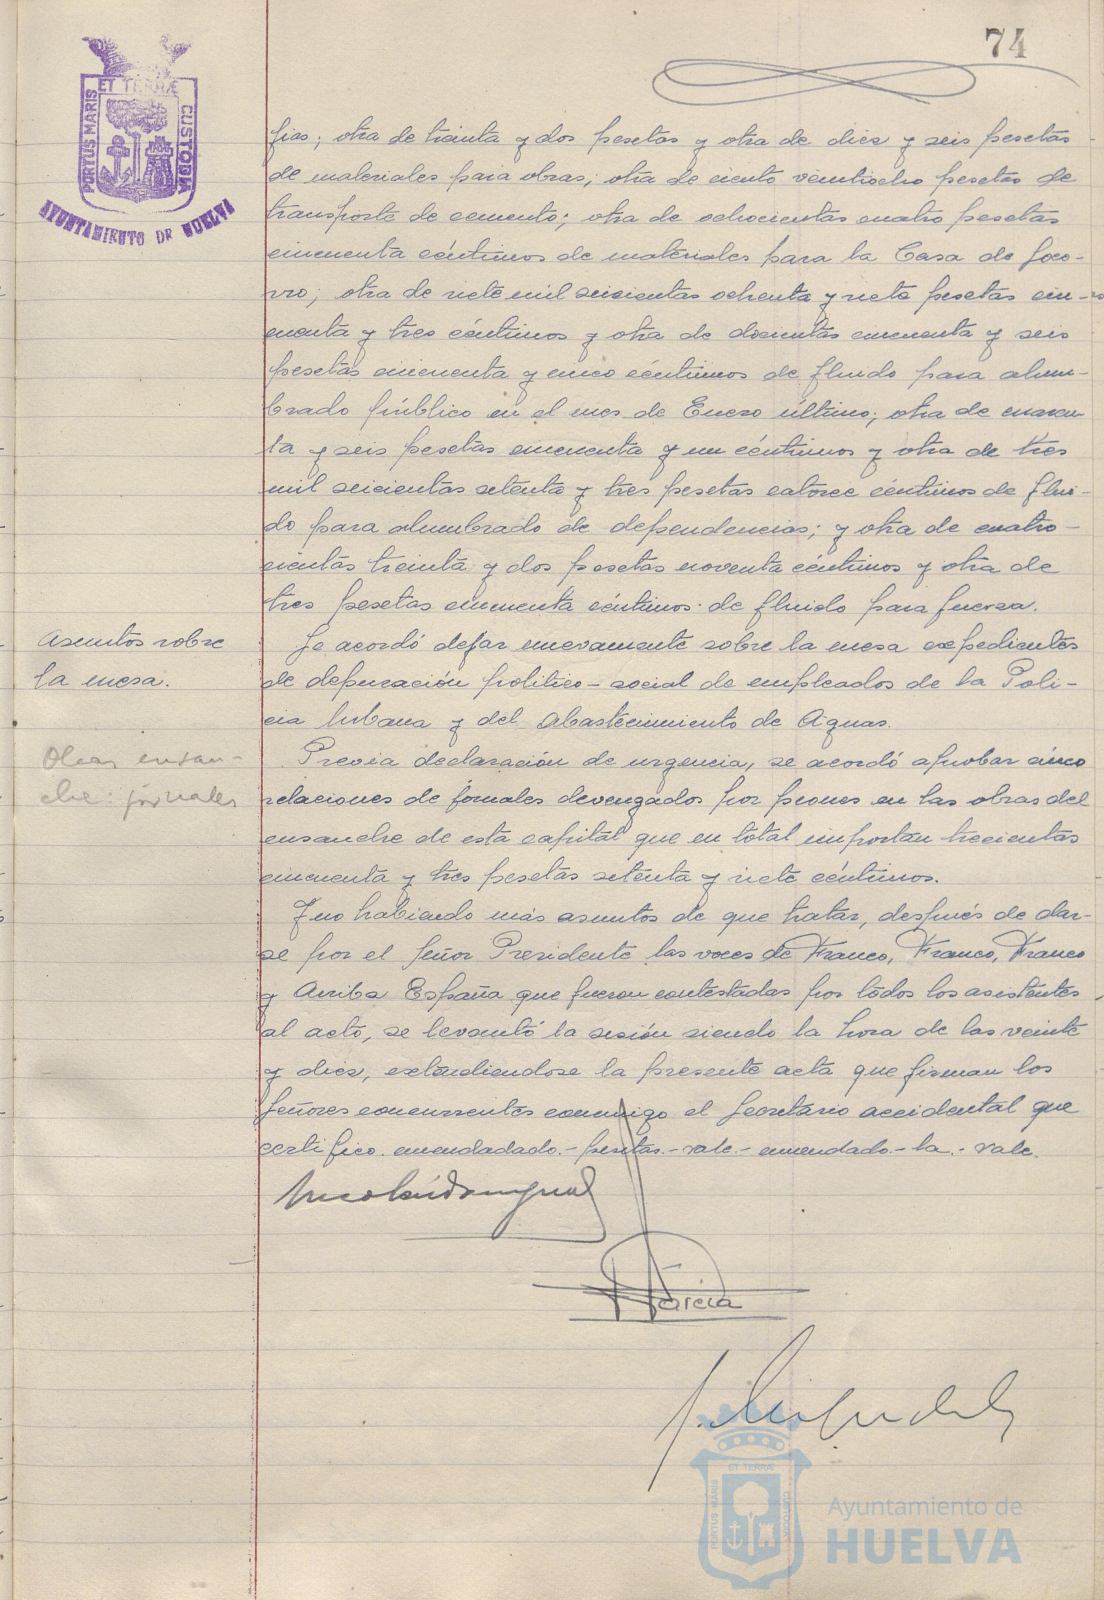 74
PORTUS MARIS
ET TERRÆ
CUSTODIA
AYUNTAMIENTO DE HUELVA
fias; otra de treinta y dos pesetas y otra de diez y seis pesetas
de materiales para obras; otra de ciento veintiocho pesetas de
transporte de cemento; otra de ochocientas cuatro pesetas
cincuenta céntimos de materiales para la Casa de Soco-
rro; otra de siete mil seicientas ochenta y siete pesetas cin-
cuenta y tres céntimos y otra de docientas cincuenta y seis
pesetas cincuenta y cinco céntimos de fluido para alum-
brado público en el mes de Enero último; otra de cuaren-
ta y seis pesetas cincuenta y un céntimos y otra de tres
mil seicientas setenta y tres pesetas catorce céntimos de flui-
do para alumbrado de dependencias; y otra de cuatro-
cientas treinta y dos pesetas noventa céntimos y otra de
tres pesetas cincuenta céntimos de fluido para fuerza.
Asuntos sobre
la mesa.
Se acordó dejar nuevamente sobre la mesa expedientes
de depuración politico-social de empleados de la Poli-
cia Urbana y del Abastecimiento de Aguas.
Obras ensan-
che: jornales
Previa declaración de urgencia, se acordó aprobar cinco
relaciones de jornales devengados por peones en las obras del
ensanche de esta capital que en total importan trecientas
cincuenta y tres pesetas setenta y siete céntimos.
Y no habiendo más asuntos de que tratar, después de dar-
se por el Señor Presidente las voces de Franco, Franco, Franco
y Arriba España que fueron contestadas por todos los asistentes
al acto, se levantó la sesión siendo la hora de las veinte
y diez, extendiendose la presente acta que firman los
Señores concurrentes conmigo el Secretario accidental que
certifico. enmendadado.-pesetas.-vale.-enmendado.-la.-vale.
García
ET TERRÆ
PORTUS MARIS
CUSTODIA
Ayuntamiento de
HUELVA